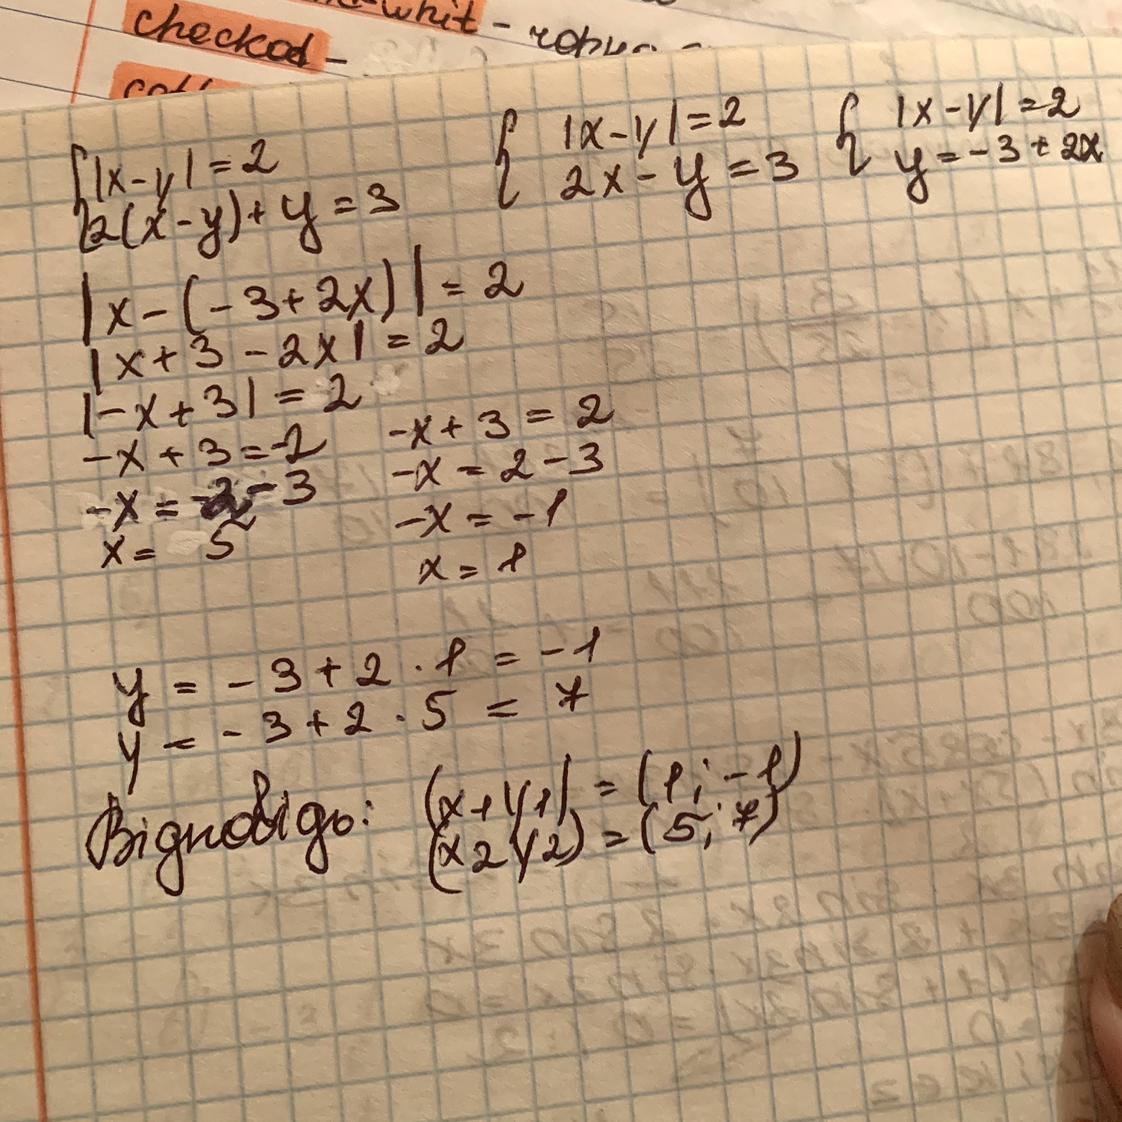 checked -
{|x-y| = 2
{2(x-y)+y = 3
{|x-y| = 2
{2x-y = 3
{|x-y| = 2
{y = -3 + 2x
|x-(-3+2x)| = 2
|x+3-2x| = 2
|-x+3| = 2
-x+3 = -2
-x = -2-3
x = 5
-x+3 = 2
-x = 2-3
-x = -1
x = 1
y = -3+2·1 = -1
y = -3+2·5 = 7
Відповідь: (x1y1) = (1; -1)
(x2y2) = (5; 7)